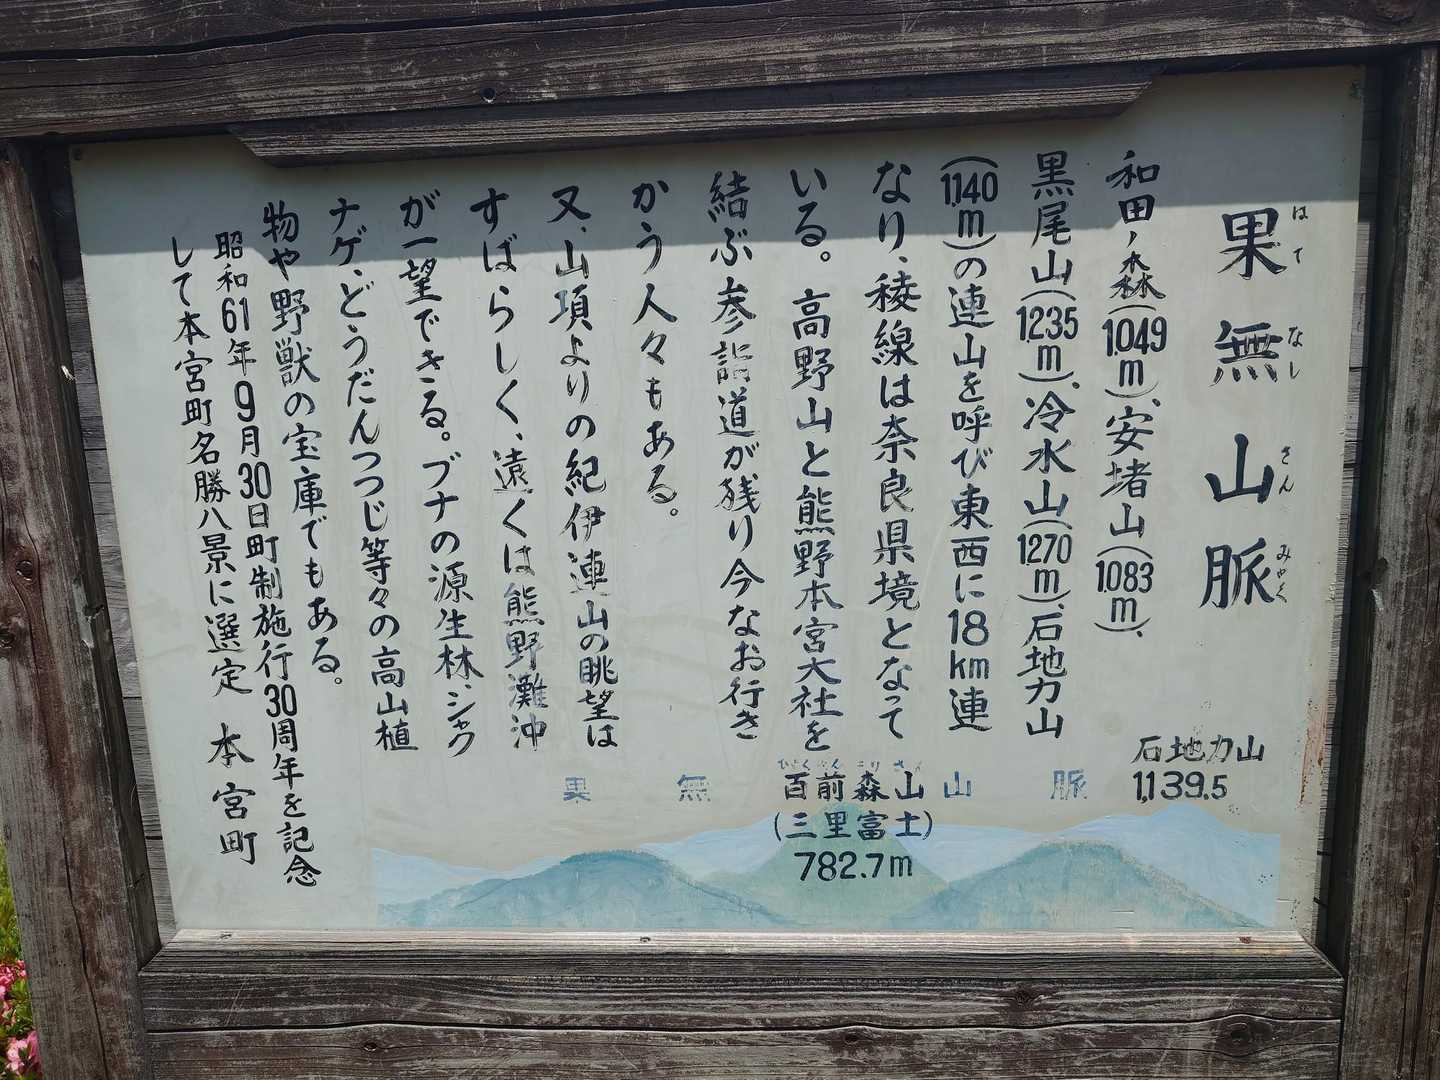 果無山脈
はてなしさんみゃく
和田ノ森(1,049m)、安堵山(1,083m)、
黒尾山(1235m)、冷水山(1270m)、石地力山
(1,140m)の連山を呼び東西に18km連
なり、稜線は奈良県境となって
いる。高野山と熊野本宮大社を
結ぶ参詣道が残り今なお行き
かう人々もある。
又、山頂よりの紀伊連山の眺望は
すばらしく、遠くは熊野灘沖
が一望できる。ブナの源生林、シャク
ナゲ、どうだんつつじ等々の高山植
物や野獣の宝庫でもある。
昭和61年9月30日町制施行30周年を記念
して本宮町名勝八景に選定 本宮町
果無山脈
ひゃくぜんもりさん
百前森山
(三里富士)
782.7m
石地力山
1,139.5